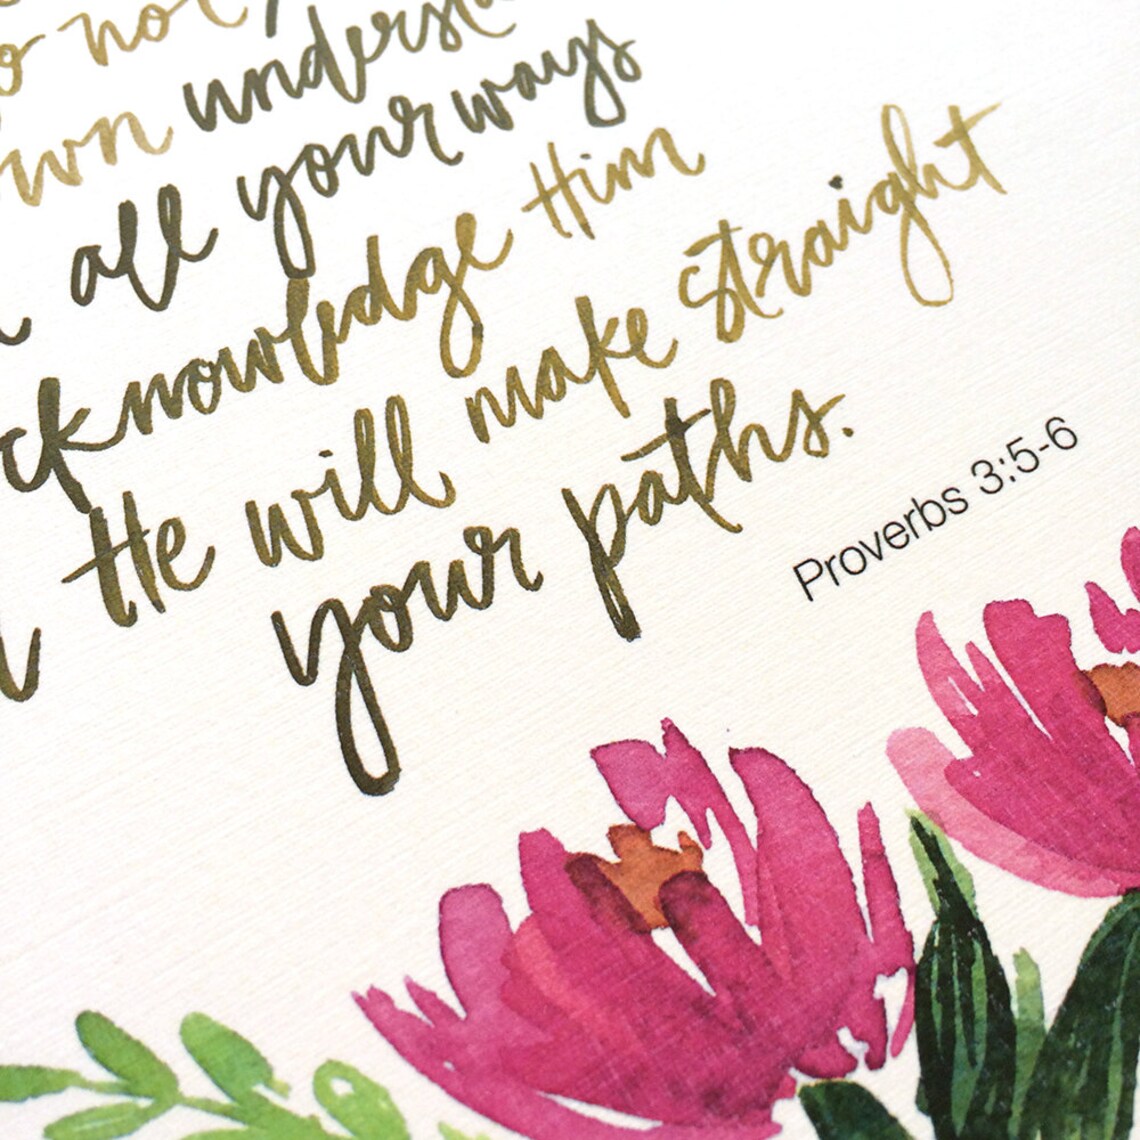 not
own understa
all your ways
cknowledge Him
He will make straight
your paths.
Proverbs 3:5-6